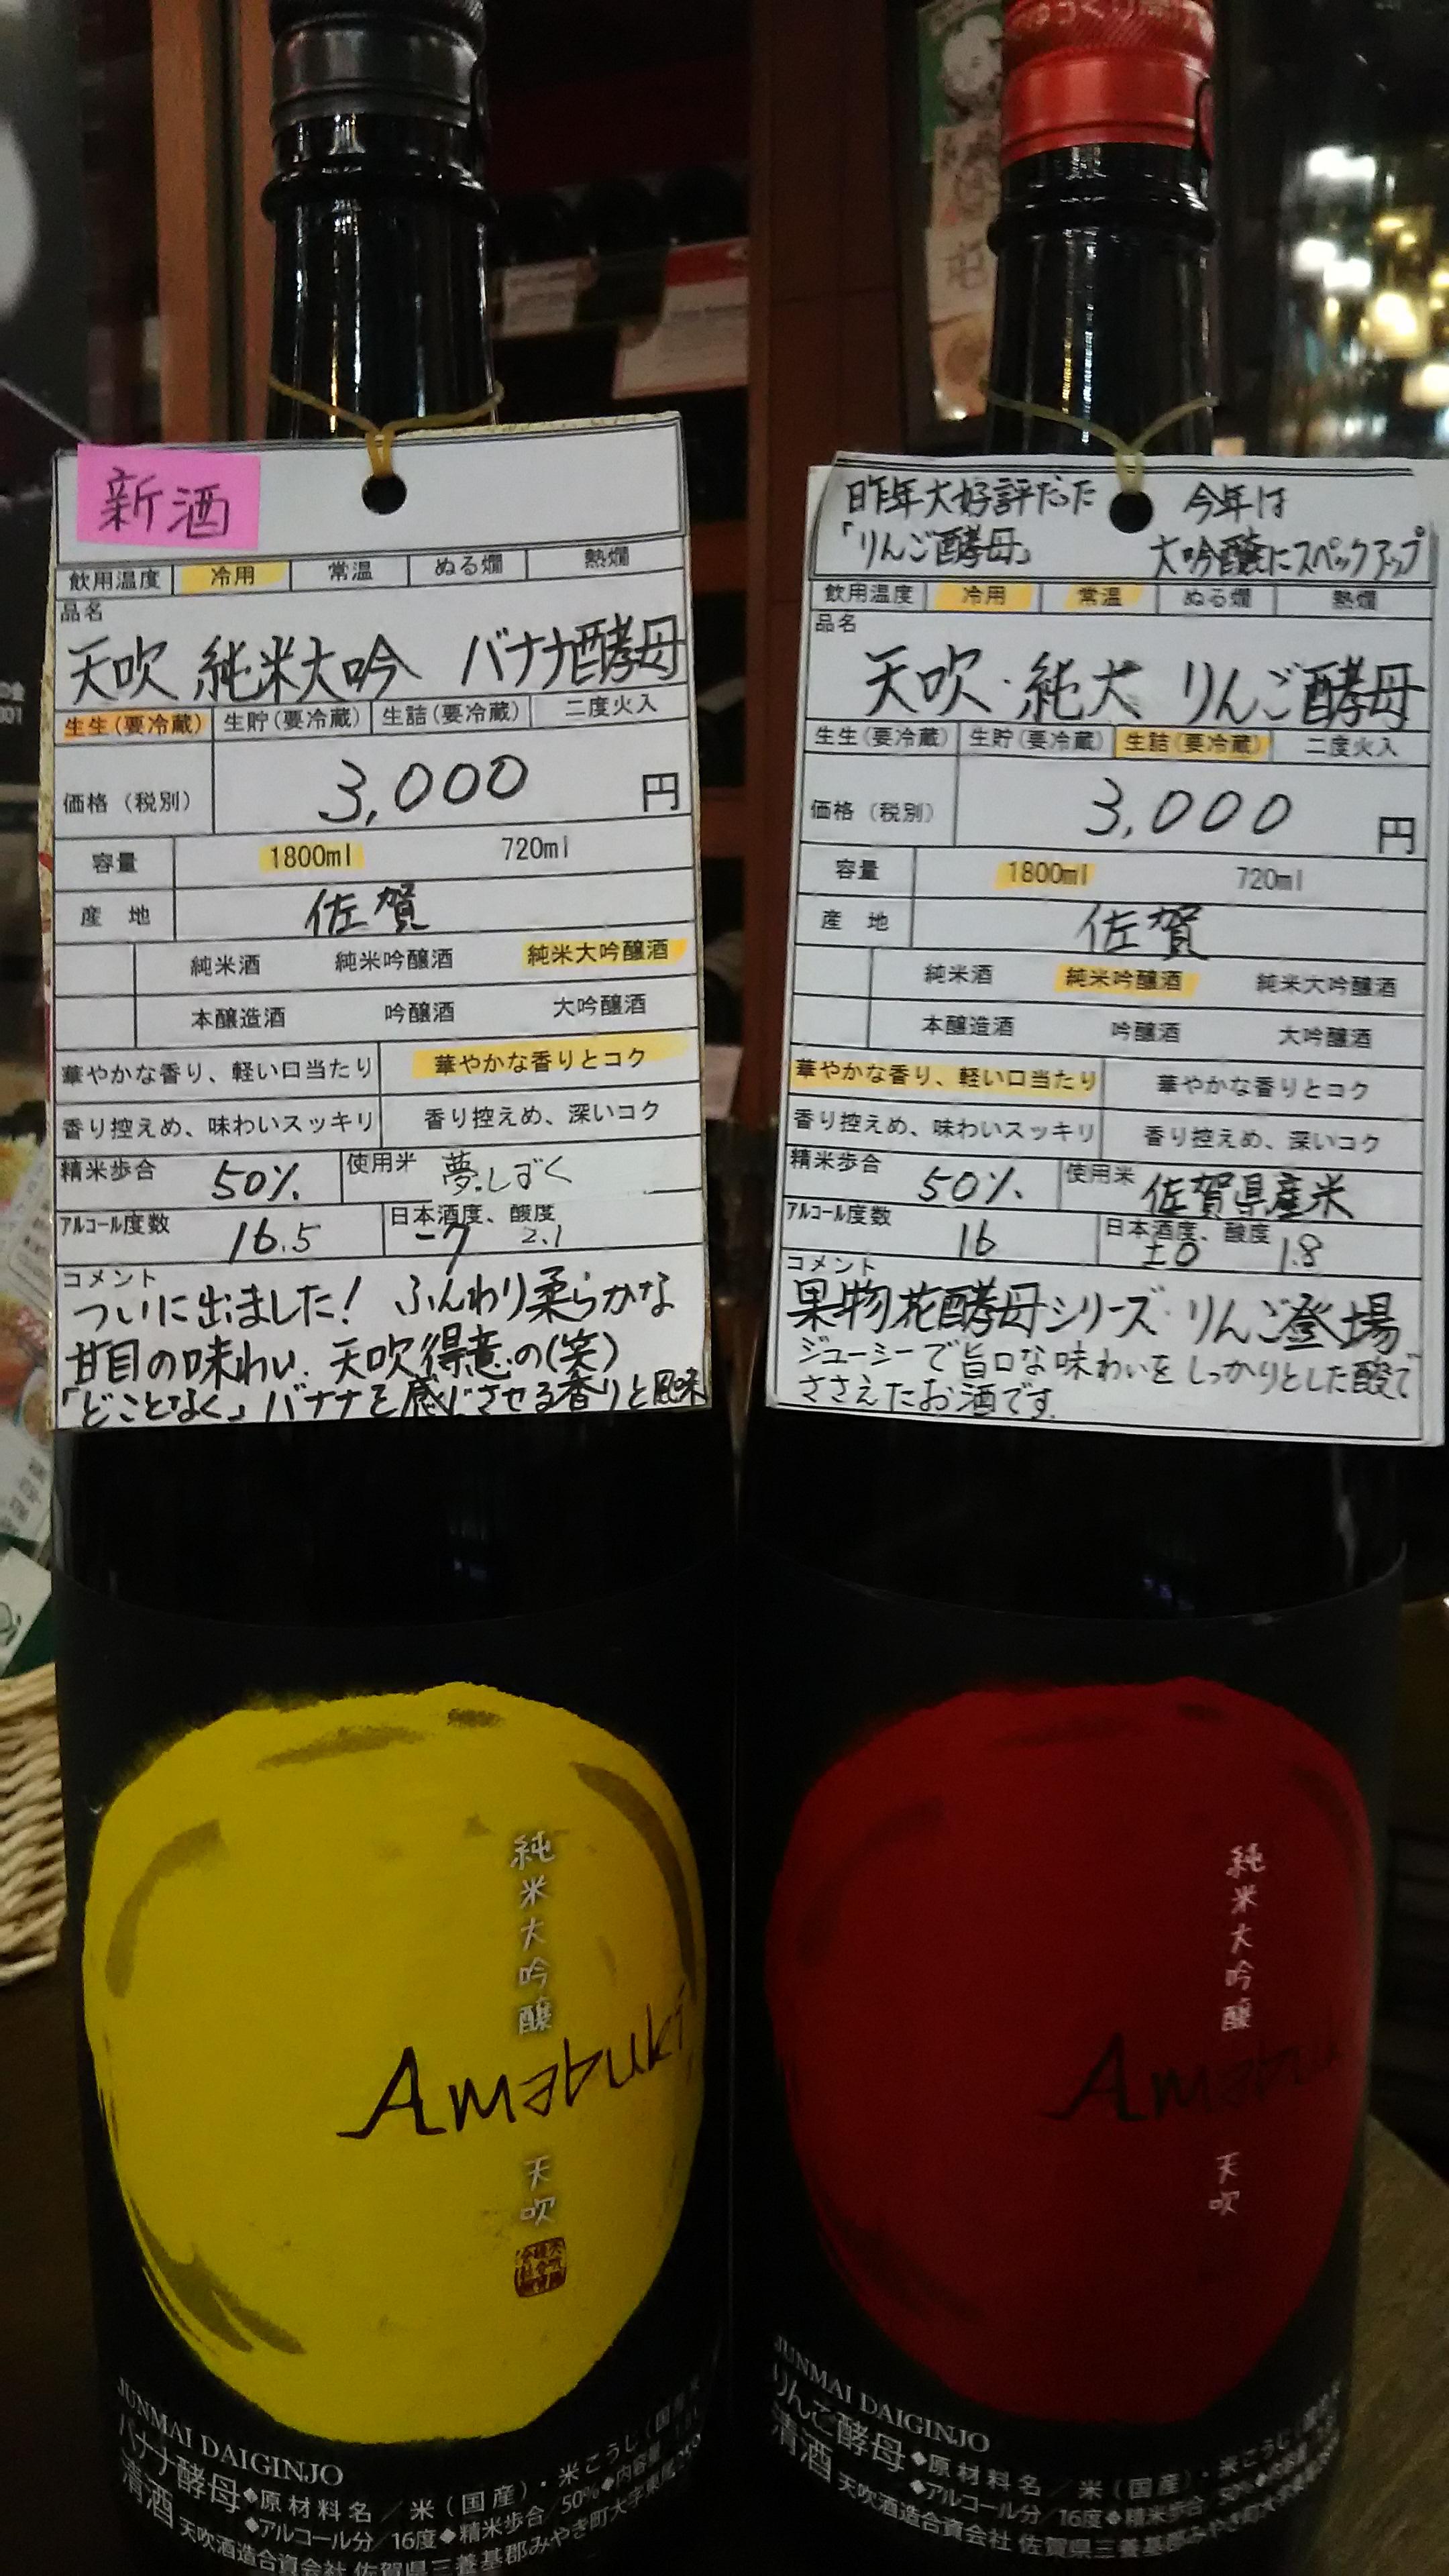 新酒
飲用温度 冷用 常温 ぬる燗 熱燗
品名
天吹 純米大吟 バナナ酵母
生生(要冷蔵) 生貯(要冷蔵) 生詰(要冷蔵) 二度火入
価格（税別） 3,000 円
容量 1800ml 720ml
産地 佐賀
純米酒 純米吟醸酒 純米大吟醸酒
本醸造酒 吟醸酒 大吟醸酒
華やかな香り、軽い口当たり 華やかな香りとコク
香り控えめ、味わいスッキリ 香り控えめ、深いコク
精米歩合 50% 使用米 夢しずく
アルコール度数 16.5 日本酒度、酸度 -7 2.1
コメント
ついに出ました! ふんわり柔らかな
甘目の味わい、天吹得意の(笑)
「どことなく」バナナを感じさせる香りと風味
昨年大好評だった 今年は
「りんご酵母」 大吟醸にスペックアップ
飲用温度 冷用 常温 ぬる燗 熱燗
品名
天吹・純大 りんご酵母
生生(要冷蔵) 生貯(要冷蔵) 生詰(要冷蔵) 二度火入
価格（税別） 3,000 円
容量 1800ml 720ml
産地 佐賀
純米酒 純米吟醸酒 純米大吟醸酒
本醸造酒 吟醸酒 大吟醸酒
華やかな香り、軽い口当たり 華やかな香りとコク
香り控えめ、味わいスッキリ 香り控えめ、深いコク
精米歩合 50% 使用米 佐賀県産米
アルコール度数 16 日本酒度、酸度 ±0 1.8
コメント
果物花酵母シリーズ・りんご登場
ジューシーで旨口な味わいをしっかりとした酸で
ささえたお酒です.
純米大吟醸
Amabuki
天吹
JUNMAI DAIGINJO
バナナ酵母◆原材料名／米（国産）・米こうじ（国産米
清酒 ◆アルコール分／16度◆精米歩合／50%◆内容量
天吹酒造合資会社 佐賀県三養基郡みやき町大字東尾
純米大吟醸
Amabuki
天吹
JUNMAI DAIGINJO
りんご酵母◆原材料名／米（国産）・米こうじ（国産米
清酒 ◆アルコール分／16度◆精米歩合／50%◆内容量
天吹酒造合資会社 佐賀県三養基郡みやき町大字